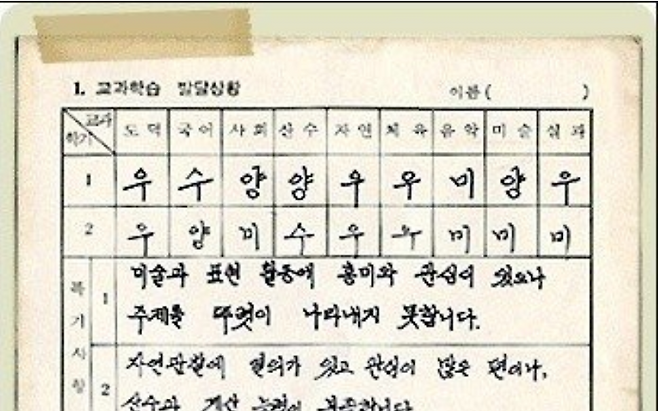 1. 교과학습 발달상황 이름( )
교과
학기 도덕 국어 사회 산수 자연 체육 음악 미술 실과
1 우 수 양 양 우 우 미 양 우
2 우 양 미 수 우 우 미 미 미
특기사항
1 미술과 표현 활동에 흥미와 관심이 있으나
주제를 뚜렷이 나타내지 못합니다.
2 자연관찰에 열의가 있고 관심이 많은 편이나,
산수과 계산 능력이 부족합니다.